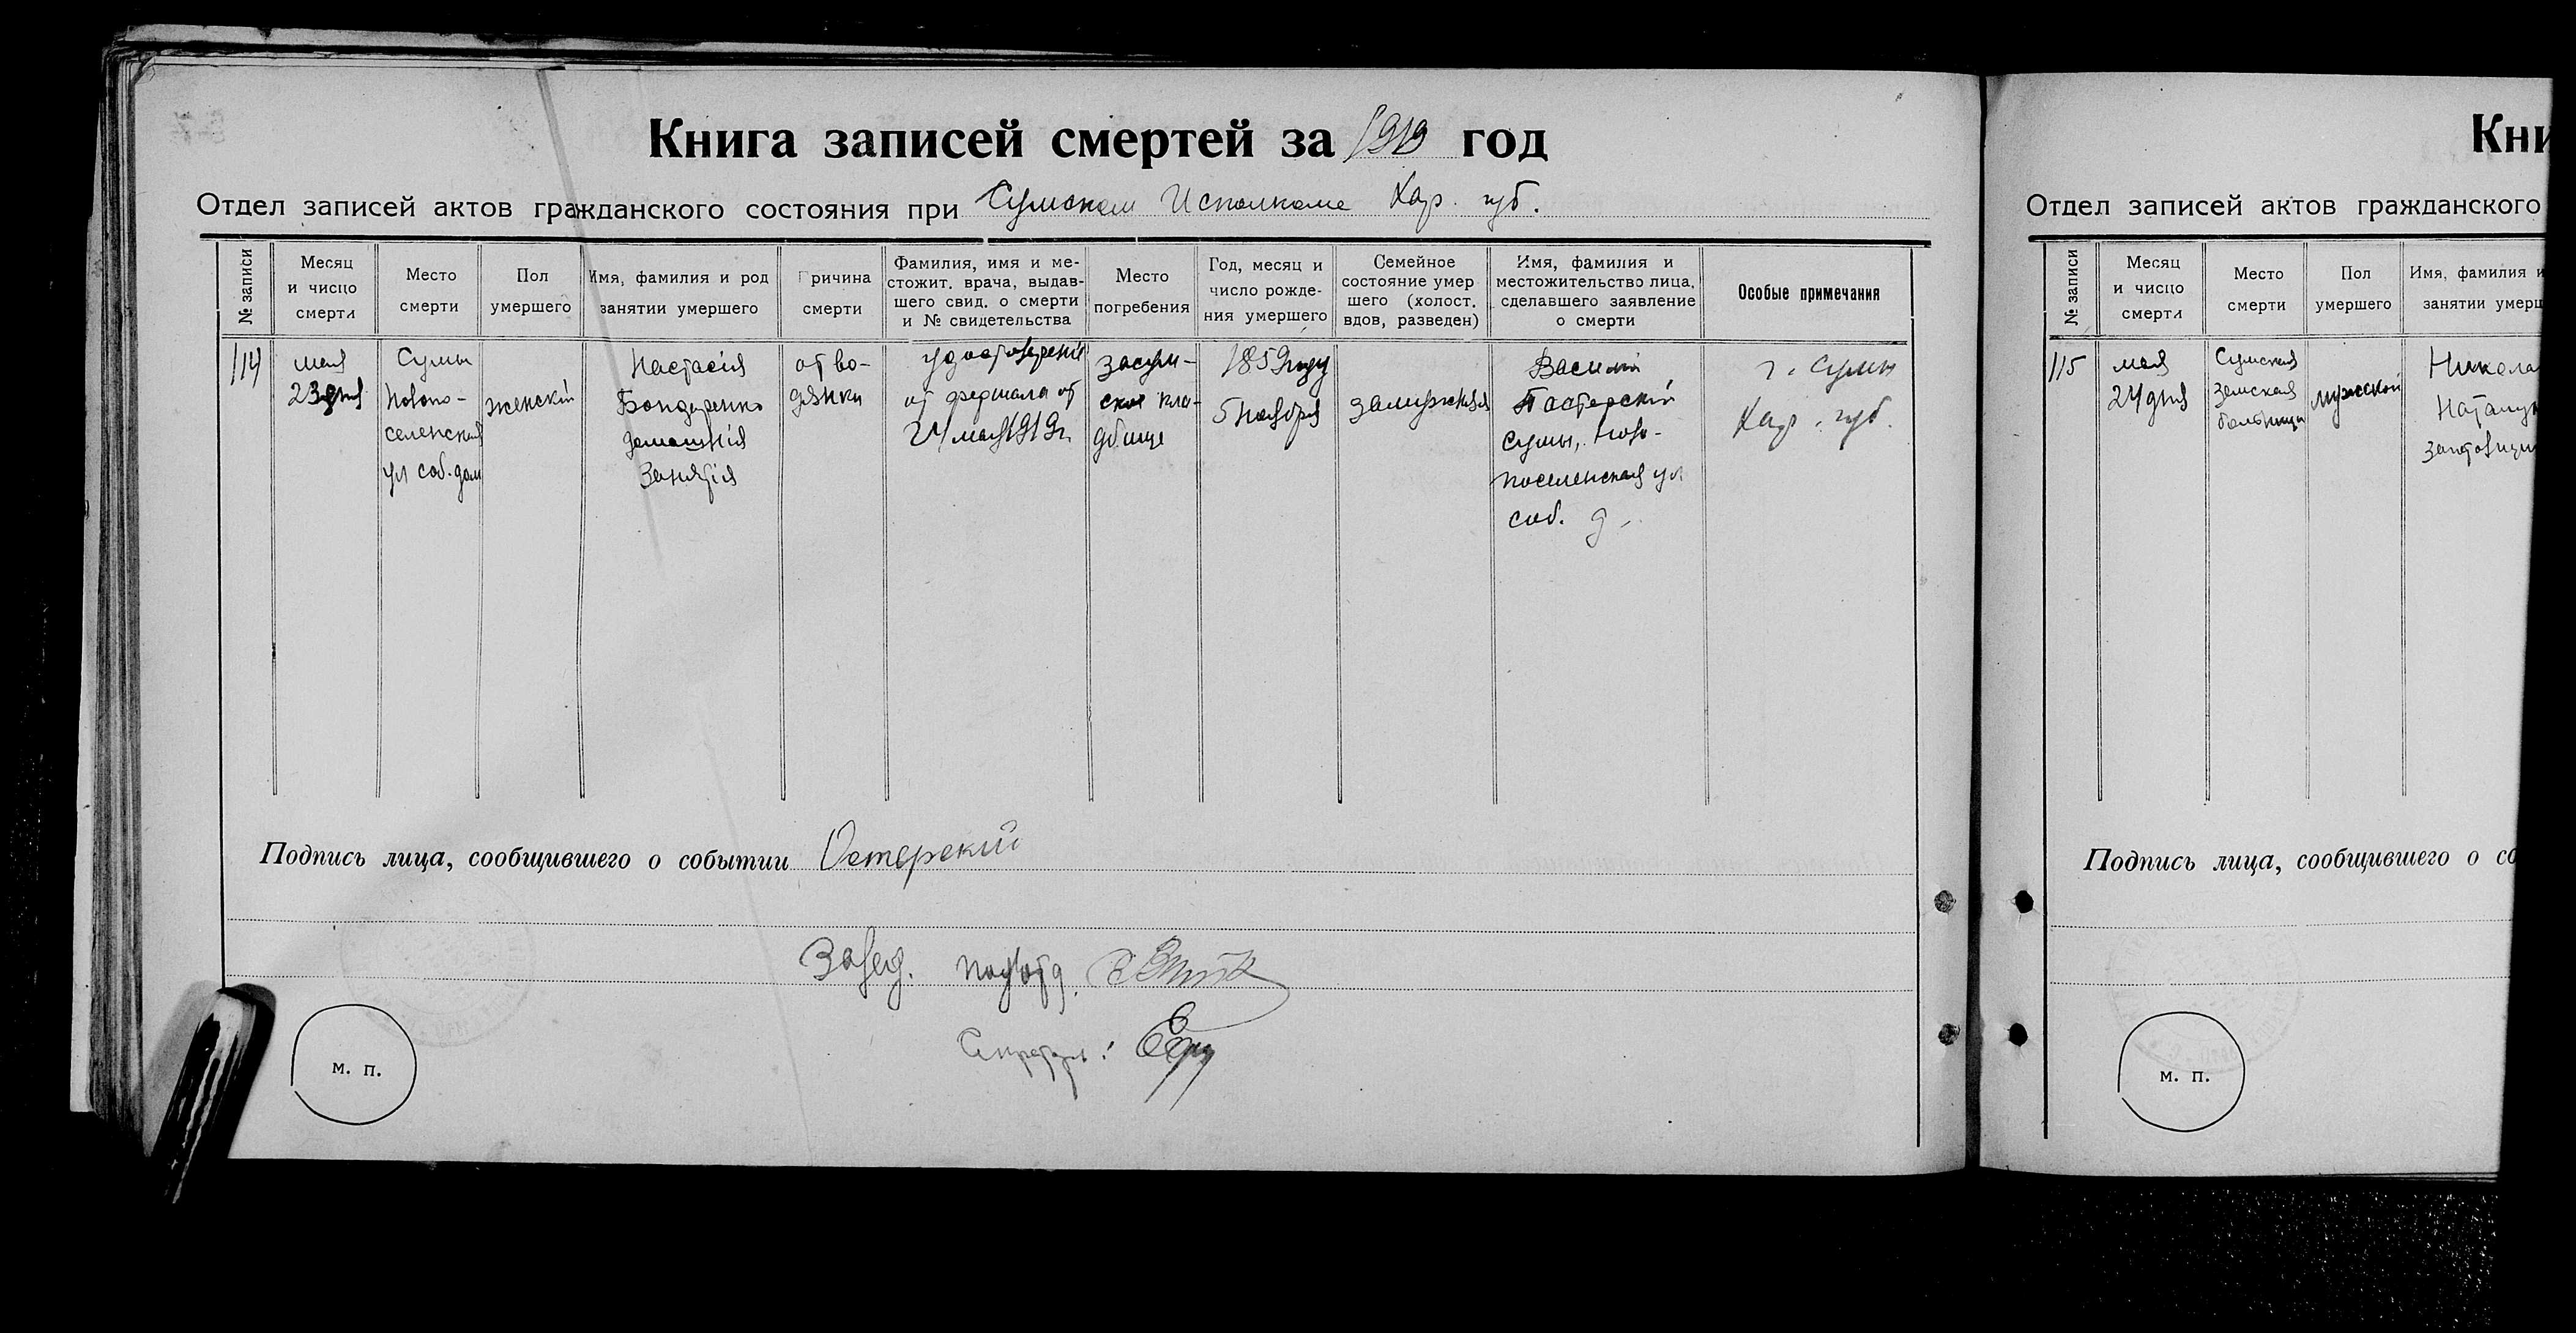 Книга записей смертей за 1919 год
Отдел записей актов гражданского состояния при Сумском Исполкоме Хар. губ.
№ записи
Месяц и число смерти
Место смерти
Пол умершего
Имя, фамилия и род занятии умершего
Причина смерти
Фамилия, имя и ме-
стожит. врача, выдав-
шего свид. о смерти
и № свидетельства
Место погребения
Год, месяц и
число рожде-
ния умершего
Семейное
состояние умер
шего (холост.
вдов, разведен)
Имя, фамилия и
местожительство лица,
сделавшего заявление
о смерти
Особые примечания
114
мая
23 дня
Сумы
Новопо-
селенская
ул соб. дом
женскій
Настасія
Бондаренко
домашнія
Занятія
от во-
дянки
удостоверение
от фершала от
24 мая 1919 г.
засум-
ское кла-
дбище
1859 году
5 Ноября
замужняя
Василій
сумы, Ново-
поселенская ул
соб. д.
г. Сумы
Хар. губ.
Подпись лица, сообщившего о событии Остерский
Завед. подотд.
Секретарь:
м. п.
Кни
Отдел записей актов гражданского
№ записи
Месяц и число смерти
Место смерти
Пол умершего
Имя, фамилия и
занятии умерш
115
мая
24 дня
Сумская
Земская
больница
мужской
Никола
Подпись лица, сообщившего о со
м. п.